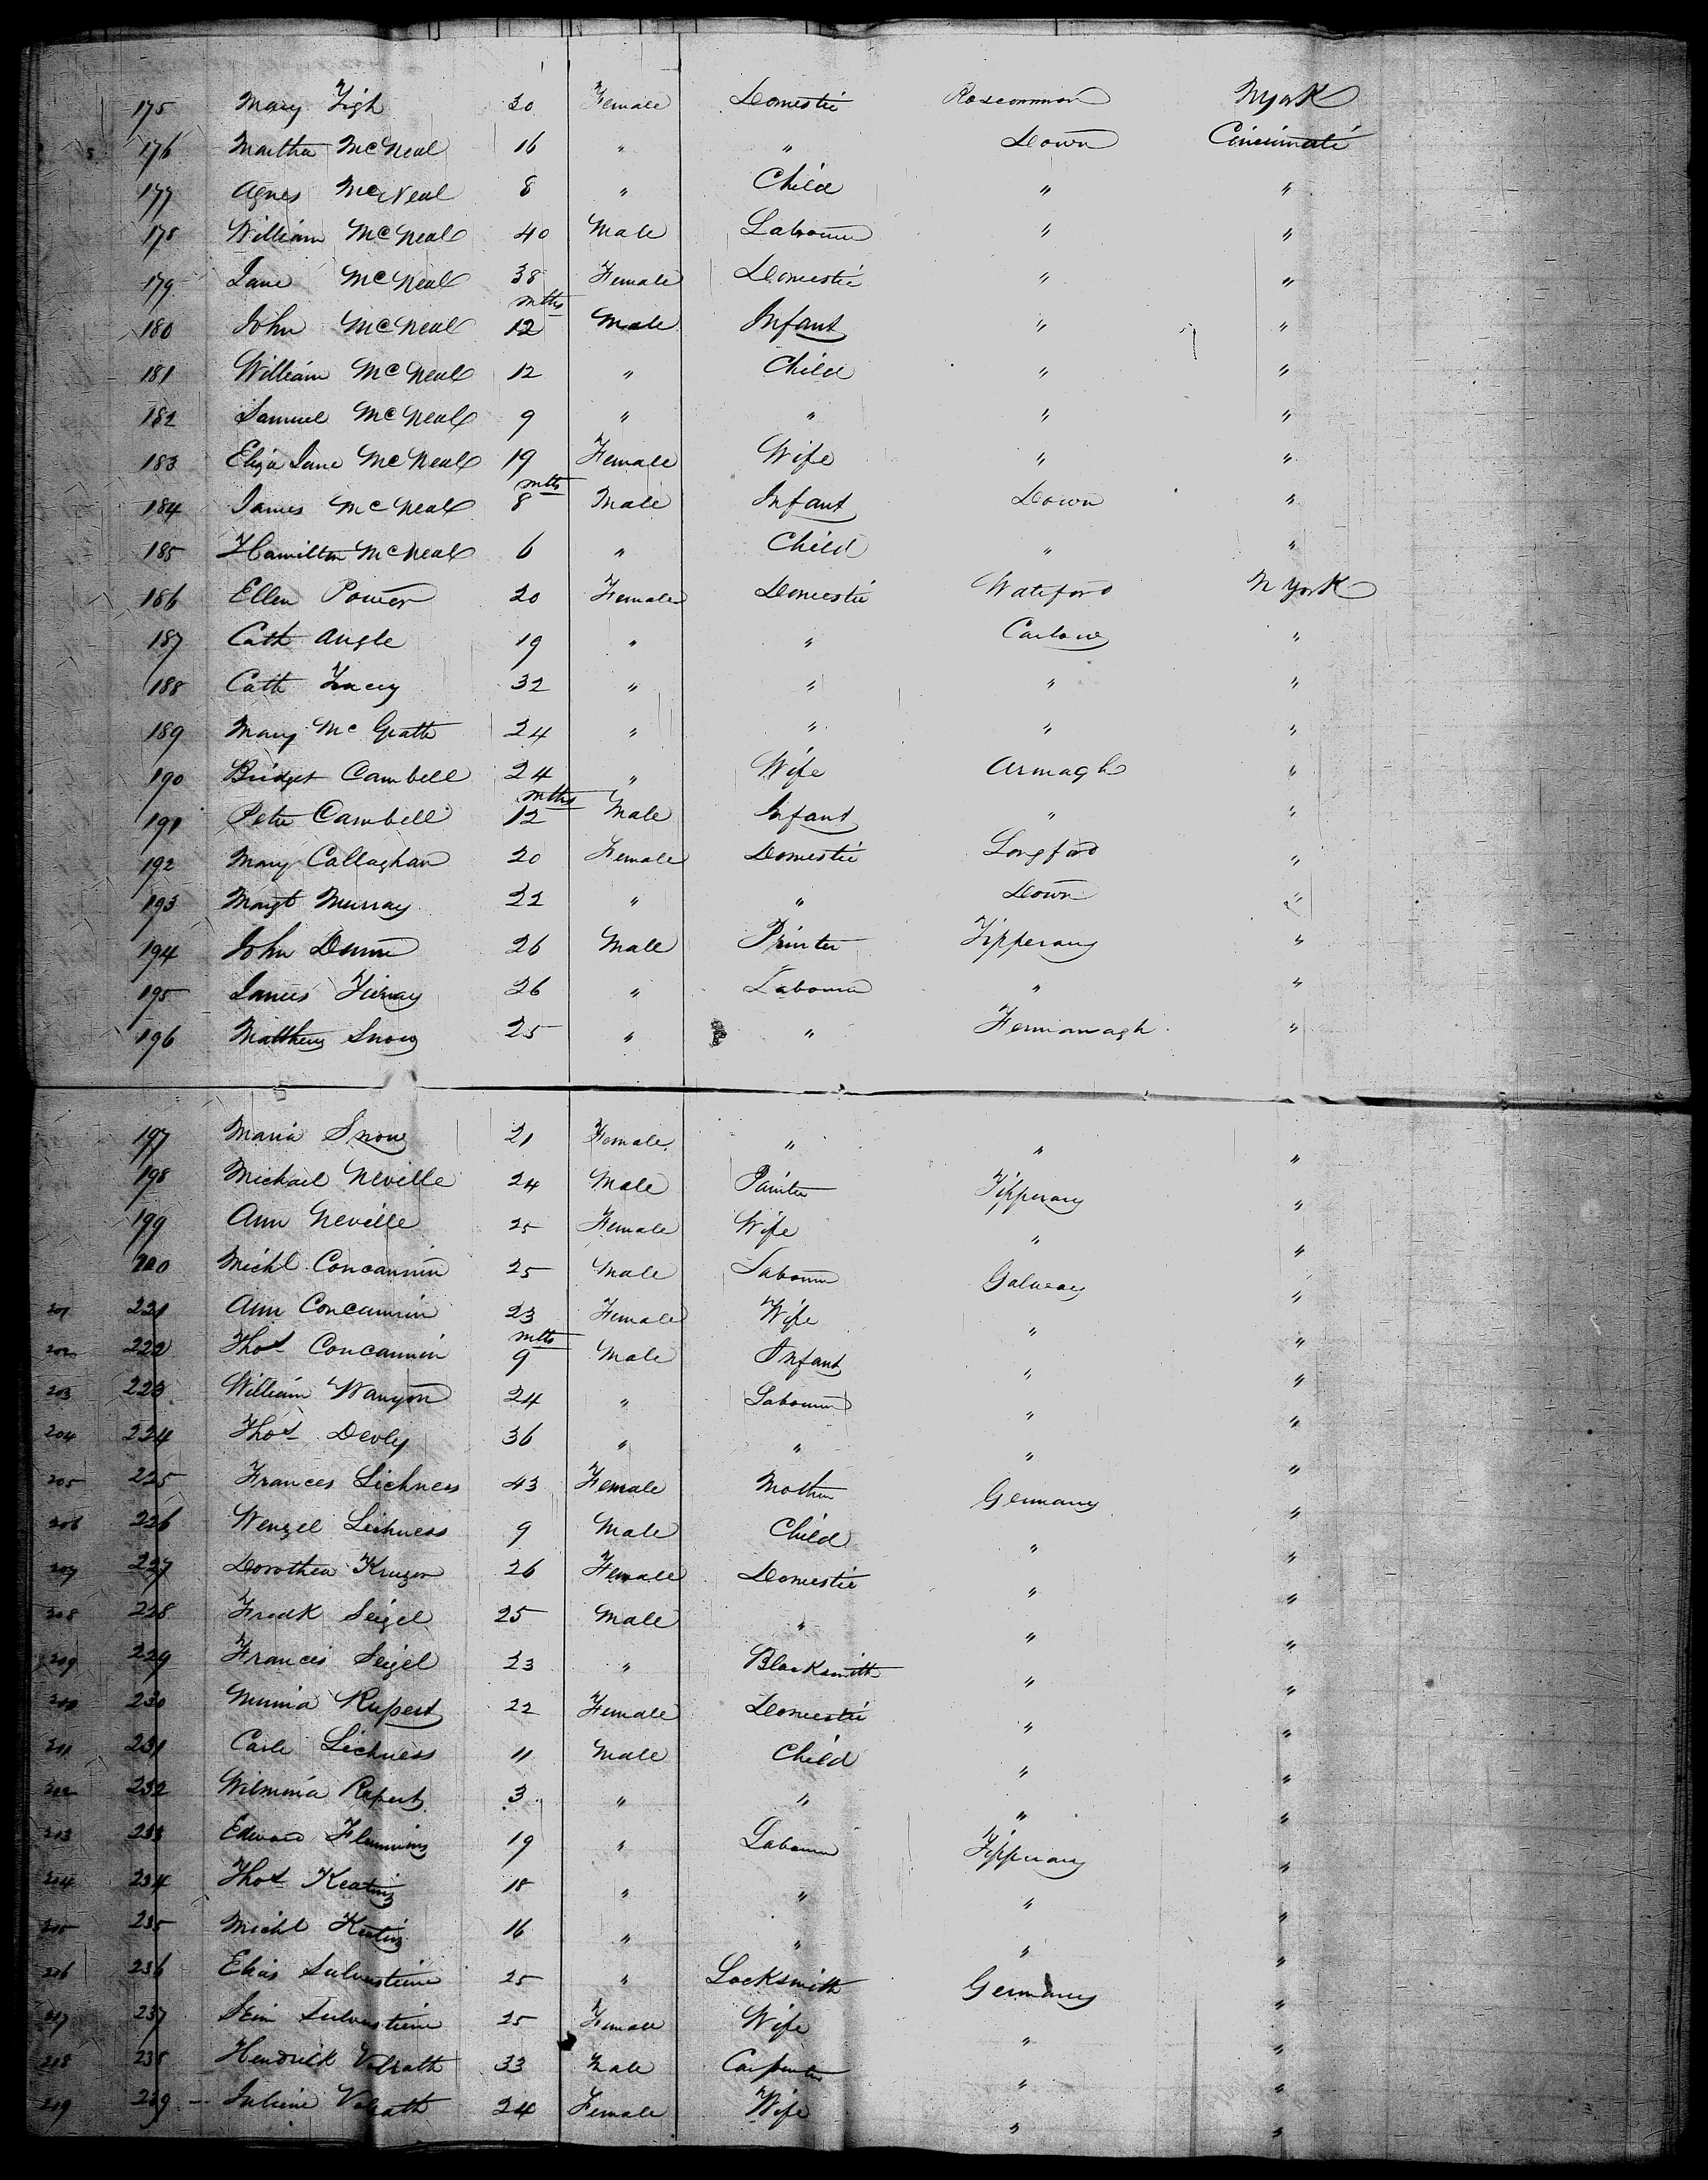 175 Mary Tigh 30 Female Domestic Roscommon NYork
5 176 Martha McNeal 16 " " Down Cincinnati
177 Agnes McNeal 8 " Child " "
178 William McNeal 40 Male Labourer " "
179 Jane McNeal 38 Female Domestic " "
180 John McNeal mths 12 Male Infant " "
181 William McNeal 12 " Child " "
182 Samuel McNeal 9 " " " "
183 Eliza Jane McNeal 19 Female Wife " "
184 James McNeal mths 8 Male Infant Down "
185 Hamilton McNeal 6 " Child " "
186 Ellen Power 20 Female Domestic Wateford N York
187 Cath Angle 19 " " Carlow "
188 Cath Tracey 32 " " " "
189 Mary McGrath 24 " " " "
190 Bridget Cambell 24 " Wife Armagh "
191 Peter Cambell mths 12 Male Infant " "
192 Mary Callaghan 20 Female Domestic Longford "
193 Margt Murray 22 " " Down "
194 John Dunn 26 Male Printer Tipperary "
195 James 26 " Labourer " "
196 Matthew Snow 25 " " Fermanagh "
197 Maria Snow 21 Female " " "
198 Michael Neville 24 Male Painter Tipperary "
199 Ann Neville 25 Female Wife " "
200 Michl Concannin 25 Male Labourer Galway "
201 221 Ann Concannin 23 Female Wife " "
202 222 Thos Concannin mths 9 Male Infant " "
203 223 William Wanyon 24 " Labourer " "
204 224 Thos Devly 36 " " " "
205 225 Frances Lichness 43 Female Mother Germany "
206 226 Wenzel Lichness 9 Male Child " "
207 227 Dorothea Kruger 26 Female Domestic " "
208 228 Fredk Seigel 25 Male " " "
209 229 Francis Seigel 23 " Blacksmith " "
230 Rupert 22 Female Domestic " "
211 231 Carle Lichness 11 Male Child " "
232 Wilmina Rupert 3 " " " "
213 233 Edward Flemming 19 " Labourer Tipperary "
214 234 Thos Keating 18 " " " "
215 235 Michl Keating 16 " " " "
216 236 Elias Sulversteine 25 " Locksmith Germany "
217 237 Sulversteine 25 Female Wife " "
218 238 Hendrick Volrath 33 Male Carpenter " "
219 239 Juliene Volrath 24 Female Wife " "